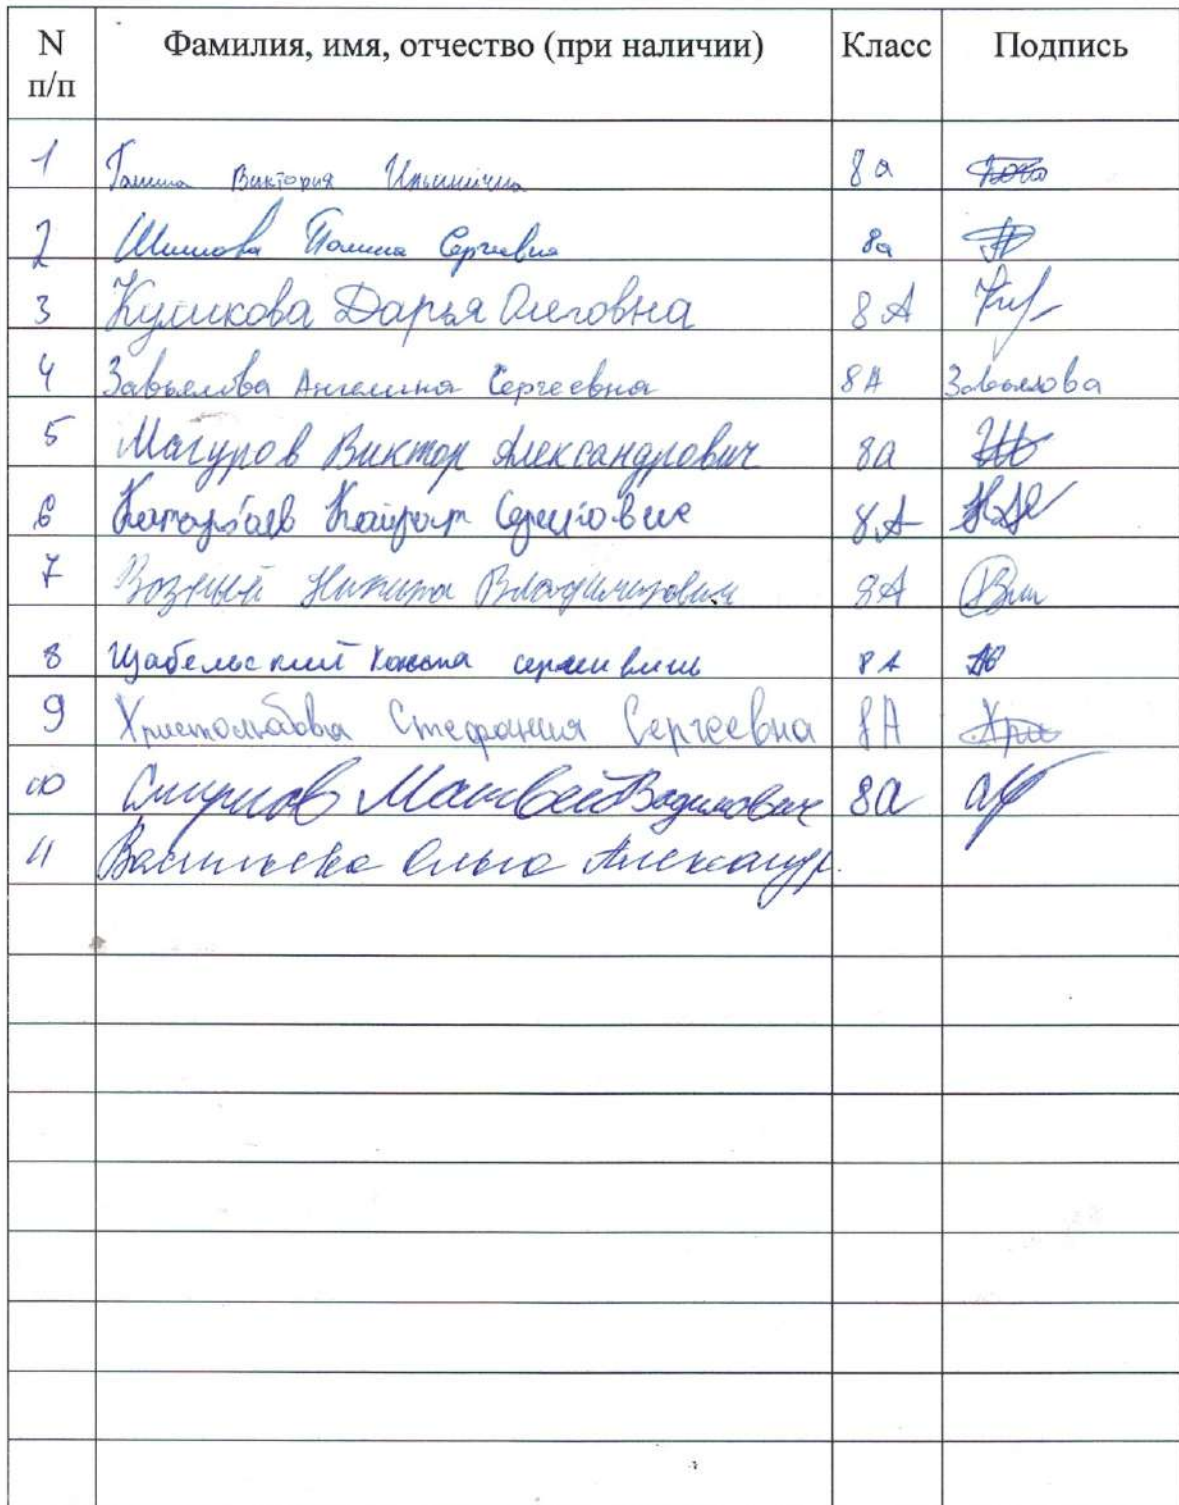 N п/п Фамилия, имя, отчество (при наличии) Класс Подпись
1 Ганина Виктория Ильинична 8а
2 Шишова Полина Сергеевна 8а
3 Куликова Дарья Олеговна 8А
4 Завьялова Ангелина Сергеевна 8А Завьялова
5 Магуров Виктор Александрович 8а
6 Кайрат 8А
7 Возный Никита Владимирович 8А
8 Щабельский 8А
9 Христолюбова Стефания Сергеевна 8А
10 Смирнов Матвей Вадимович 8а
11 Ольга Александр.